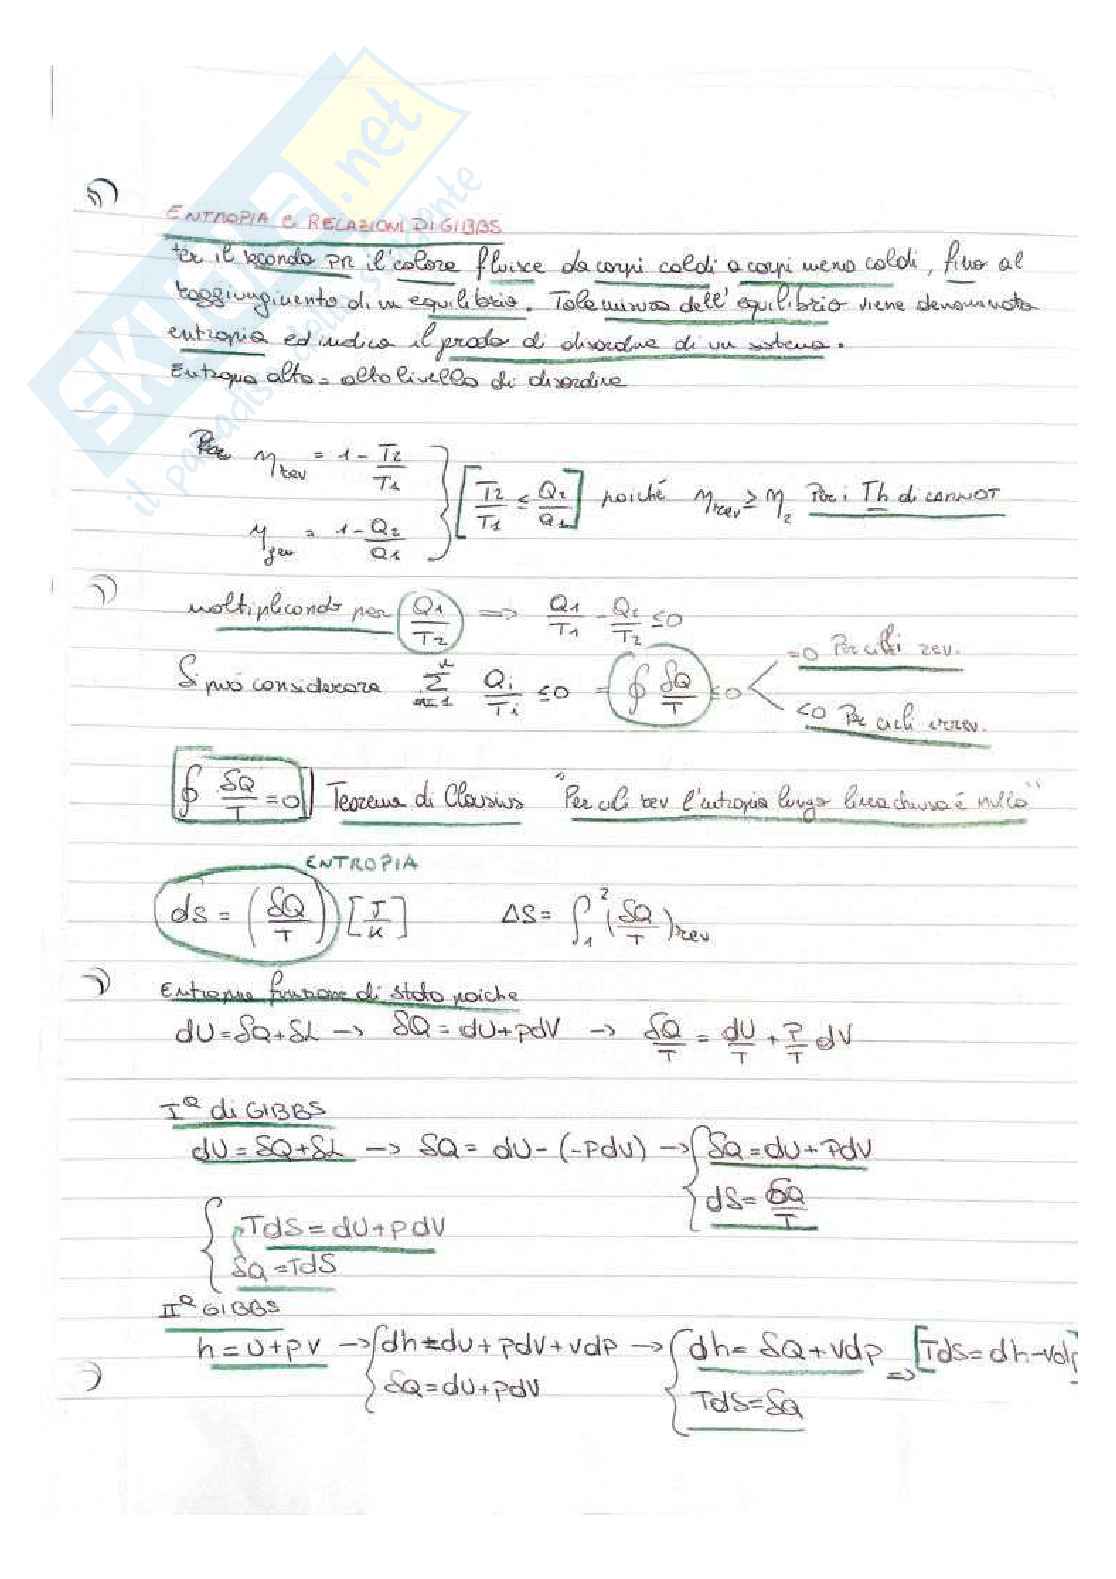 SKUOLA.net
il paradiso dello studente
ENTROPIA e RELAZIONI DI GIBBS
Per il secondo PR il calore fluisce da corpi caldi a corpi meno caldi, fino al
raggiungimento di un equilibrio. Tale misura dell'equilibrio viene denominata
entropia ed indica il grado di disordine di un sistema.
Entropia alta = alto livello di disordine
Per η_rev = 1 - T2/T1
[T2/T1 ≤ Q2/Q1] poiché η_rev ≥ η_z Per i Th di CARNOT
η_gev = 1 - Q2/Q1
moltiplicando per (Q1/T2) => Q1/T1 - Q2/T2 ≤ 0
Si può considerare Σ Qi/Ti ≤ 0 = ∮ δQ/T ≤ 0
= 0 Per cicli rev.
< 0 Per cicli irrev.
∮ δQ/T = 0 Teorema di Clausius "Per cicli rev l'entropia lungo linea chiusa é nulla"
ENTROPIA
dS = (δQ/T) [J/K] ΔS = ∫₁² (δQ/T)rev
Entropia funzione di stato poiche
dU = δQ + δL → δQ = dU + pdV → δQ/T = dU/T + P/T dV
I^a di GIBBS
dU = δQ + δL → δQ = dU - (-PdV) → { δQ = dU + PdV
dS = δQ/T
{ TdS = dU + pdV
δQ = TdS
II^a GIBBS
h = U + PV → { dh = dU + pdV + vdp → { dh = δQ + vdp => [TdS = dh - vdp]
δQ = dU + pdV
TdS = δQ